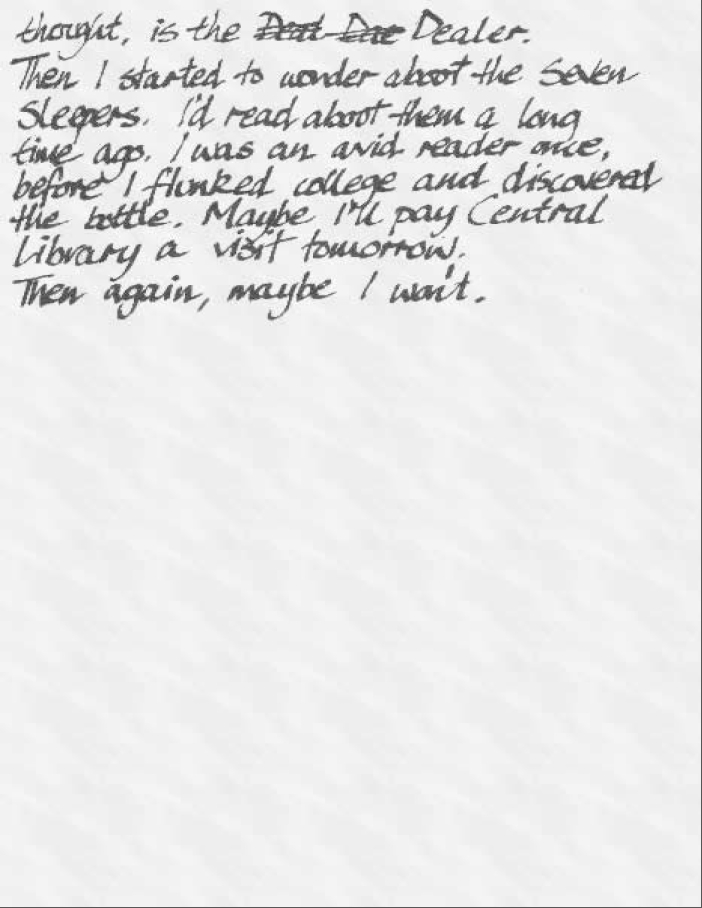 thought, is the Dealer.
Then I started to wonder about the Seven
Sleepers. I'd read about them a long
time ago. I was an avid reader once,
before I flunked college and discovered
the bottle. Maybe I'll pay Central
Library a visit tomorrow.
Then again, maybe I won't.